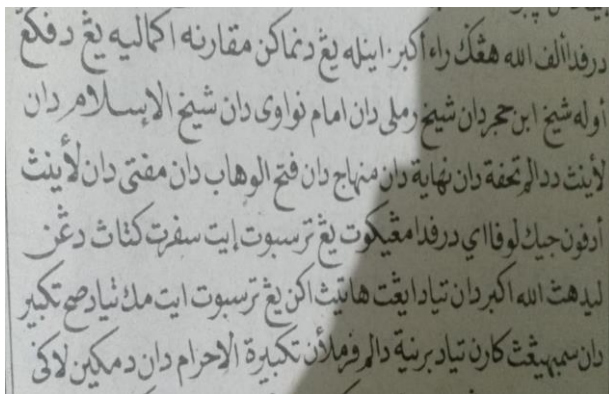 درفدا ألف الله هڠݢ راء أكبر. اينله يڠ دنماكن مقارنه اكماليه يڠ دفݢڠ
أوله شيخ ابن حجر دان شيخ رملي دان امام نواوى دان شيخ الإسلام دان
لأينڽ ددالم تحفة دان نهاية دان منهاج دان فتح الوهاب دان مفتى دان لأينڽ
أدفون جيك لوفا اي درفدا مڠيكوت يڠ ترسبوت إيت سفرت كتاڽ دڠن
ليدهڽ الله اكبر دان تياد ايڠت هاتيڽ اكن يڠ ترسبوت ايت مك تياد صح تكبير
دان سمبهيڠڽ كارن تياد برنية دالم فرملأن تكبيرة الاحرام دان دمكين لاݢي